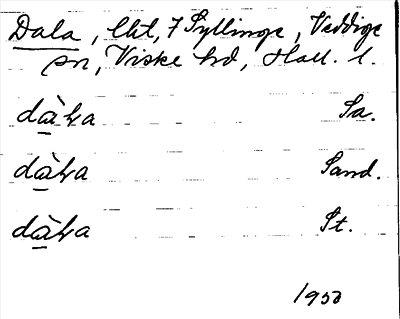 Dala, lht, 7 Syllinge, Veddige
sn, Viske hd, Hall. l.
dàɫa Sa.
dàɫa Sand.
dàɫa St.
1950